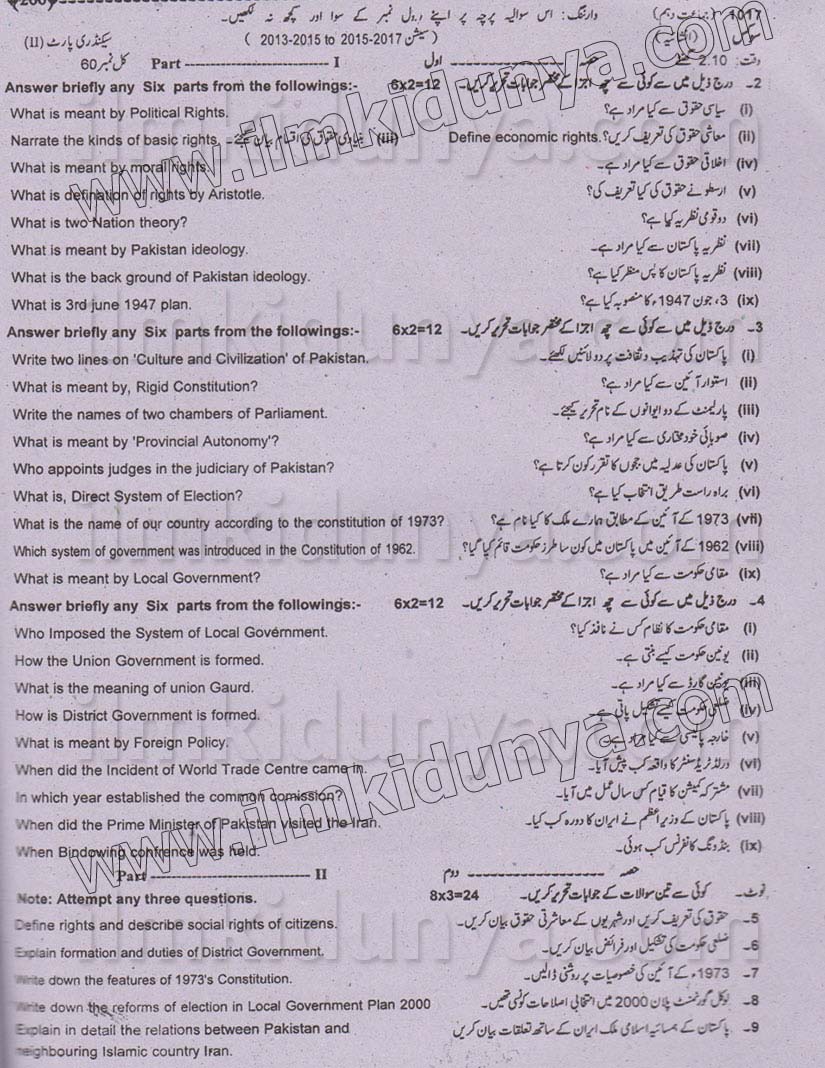 1017 (جماعت دہم) وارننگ: اس سوالیہ پرچہ پر اپنے رول نمبر کے سوا اور کچھ نہ لکھیں۔
(سیشن 2013-2015 to 2015-2017) سیکنڈری پارٹ (II)
وقت: 2.10 حصہ اول Part I کل نمبر 60
Answer briefly any Six parts from the followings:- 6x2=12 2۔ درج ذیل میں سے کوئی سے چھ اجزا کے مختصر جوابات تحریر کریں۔
What is meant by Political Rights. (i) سیاسی حقوق سے کیا مراد ہے؟
Narrate the kinds of basic rights. (iii) بنیادی حقوق کی اقسام بیان کیجئے۔ Define economic rights. (ii) معاشی حقوق کی تعریف کریں؟
What is meant by moral rights. (iv) اخلاقی حقوق سے کیا مراد ہے۔
What is defination of rights by Aristotle. (v) ارسطو نے حقوق کی کیا تعریف کی؟
What is two Nation theory? (vi) دو قومی نظریہ کیا ہے؟
What is meant by Pakistan ideology. (vii) نظریہ پاکستان سے کیا مراد ہے۔
What is the back ground of Pakistan ideology. (viii) نظریہ پاکستان کا پس منظر کیا ہے؟
What is 3rd june 1947 plan. (ix) 3، جون 1947ء کا منصوبہ کیا ہے؟
Answer briefly any Six parts from the followings:- 6x2=12 3۔ درج ذیل میں سے کوئی سے چھ اجزا کے مختصر جوابات تحریر کریں۔
Write two lines on 'Culture and Civilization' of Pakistan. (i) پاکستان کی تہذیب و ثقافت پر دو لائنیں لکھئے۔
What is meant by, Rigid Constitution? (ii) استوار آئین سے کیا مراد ہے؟
Write the names of two chambers of Parliament. (iii) پارلیمنٹ کے دو ایوانوں کے نام تحریر کیجئے۔
What is meant by 'Provincial Autonomy'? (iv) صوبائی خود مختاری سے کیا مراد ہے؟
Who appoints judges in the judiciary of Pakistan? (v) پاکستان کی عدلیہ میں ججوں کا تقرر کون کرتا ہے؟
What is, Direct System of Election? (vi) براہ راست طریق انتخاب کیا ہے؟
What is the name of our country according to the constitution of 1973? (vii) 1973 کے آئین کے مطابق ہمارے ملک کا کیا نام ہے؟
Which system of government was introduced in the Constitution of 1962. (viii) 1962 کے آئین میں پاکستان میں کون سا طرز حکومت قائم کیا گیا؟
What is meant by Local Government? (ix) مقامی حکومت سے کیا مراد ہے؟
Answer briefly any Six parts from the followings:- 6x2=12 4۔ درج ذیل میں سے کوئی سے چھ اجزا کے مختصر جوابات تحریر کریں۔
Who Imposed the System of Local Government. (i) مقامی حکومت کا نظام کس نے نافذ کیا؟
How the Union Government is formed. (ii) یونین حکومت کیسے بنتی ہے۔
What is the meaning of union Gaurd. (iii) یونین گارڈ سے کیا مراد ہے۔
How is District Government is formed. (iv) ضلعی حکومت کیسے تشکیل پاتی ہے۔
What is meant by Foreign Policy. (v) خارجہ پالیسی سے کیا مراد ہے۔
When did the Incident of World Trade Centre came in. (vi) ورلڈ ٹریڈ سنٹر کا واقعہ کب پیش آیا۔
In which year established the common comission? (vii) مشترکہ کمیشن کا قیام کس سال عمل میں آیا۔
When did the Prime Minister of Pakistan visited the Iran. (viii) پاکستان کے وزیر اعظم نے ایران کا دورہ کب کیا۔
When Bindowing confrence was held. (ix) بنڈونگ کانفرنس کب ہوئی۔
Part II حصہ دوم
Note: Attempt any three questions. 8x3=24 نوٹ۔ کوئی سے تین سوالات کے جوابات تحریر کریں۔
Define rights and describe social rights of citizens. 5۔ حقوق کی تعریف کریں اور شہریوں کے معاشرتی حقوق بیان کریں۔
Explain formation and duties of District Government. 6۔ ضلعی حکومت کی تشکیل اور فرائض بیان کریں۔
Write down the features of 1973's Constitution. 7۔ 1973ء کے آئین کی خصوصیات پر روشنی ڈالیں۔
Write down the reforms of election in Local Government Plan 2000 8۔ لوکل گورنمنٹ پلان 2000 میں انتخابی اصلاحات کونسی تھیں۔
Explain in detail the relations between Pakistan and 9۔ پاکستان کے ہمسایہ اسلامی ملک ایران کے ساتھ تعلقات بیان کریں
neighbouring Islamic country Iran.
www.ilmkidunya.com
www.ilmkidunya.com